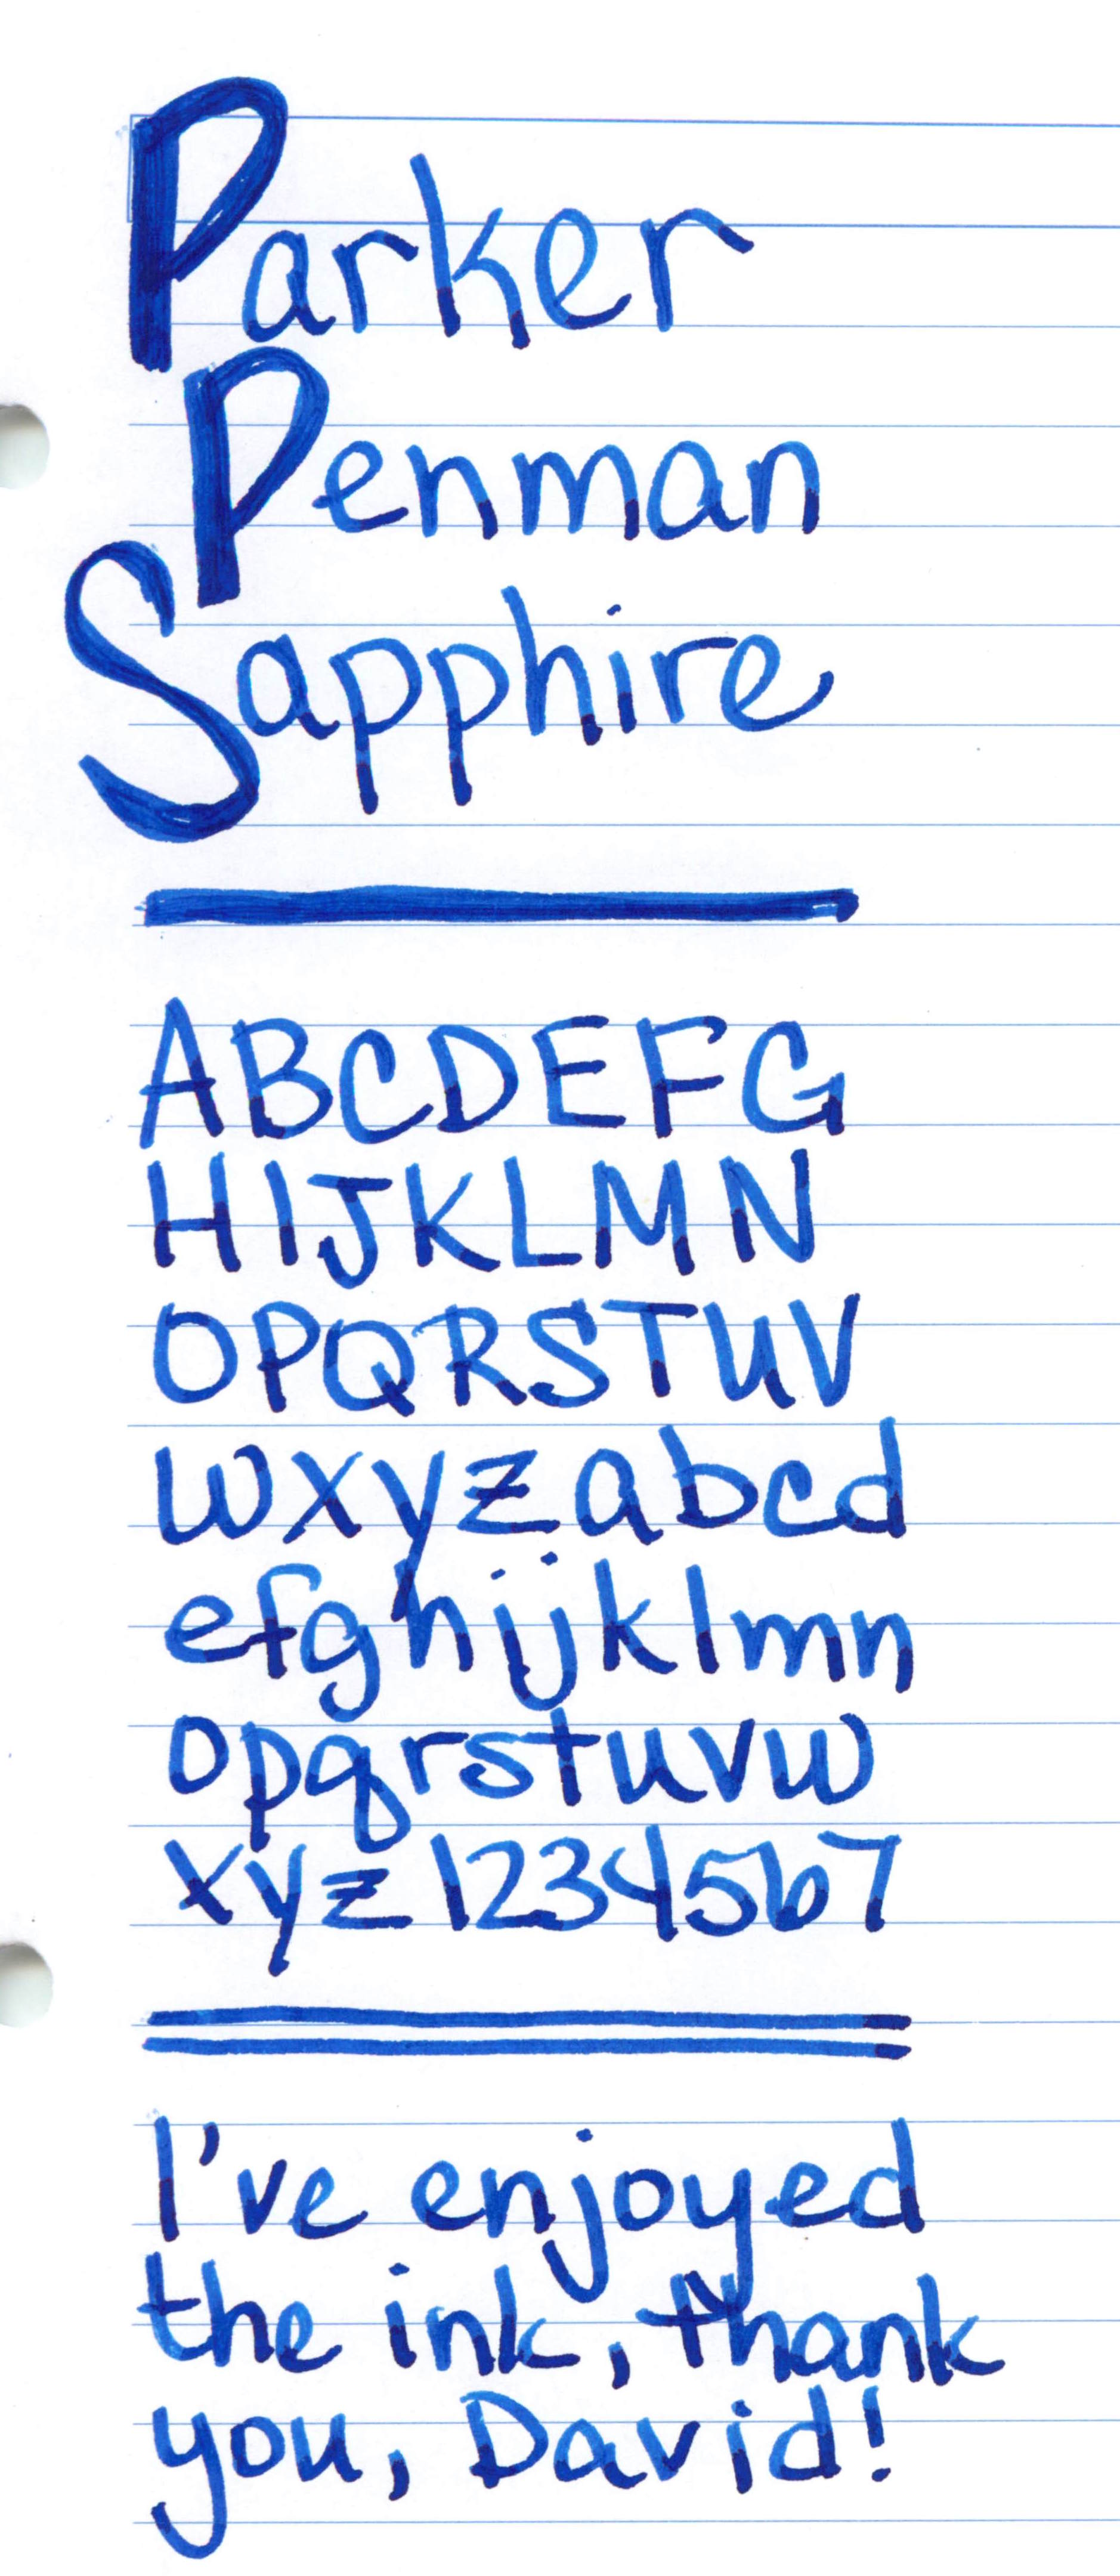 Parker
Penman
Sapphire
ABCDEFG
HIJKLMN
OPQRSTUV
wxyzabcd
efghijklmn
opqrstuvw
xyz1234567
I've enjoyed
the ink, thank
you, David!